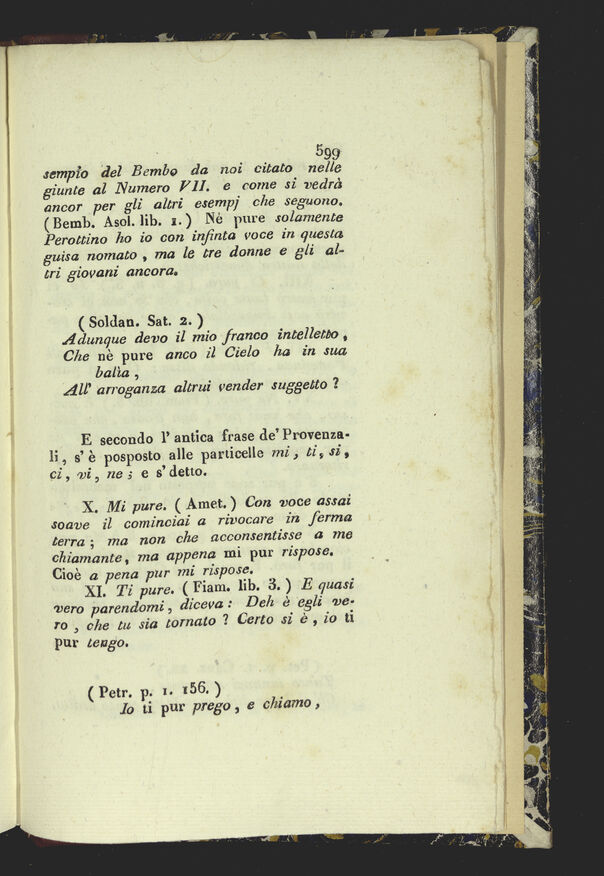 599
sempio del Bembo da noi citato nelle
giunte al Numero VII. e come si vedrà
ancor per gli altri esempj che seguono.
(Bemb. Asol. lib. 1.) Nè pure solamente
Perottino ho io con infinta voce in questa
guisa nomato, ma le tre donne e gli al-
tri giovani ancora.
(Soldan. Sat. 2.)
Adunque devo il mio franco intelletto,
Che nè pure anco il Cielo ha in sua
balìa,
All' arroganza altrui vender suggetto?
E secondo l'antica frase de' Provenza-
li, s'è posposto alle particelle mi, ti, si,
ci, vi, ne; e s' detto.
X. Mi pure. (Amet.) Con voce assai
soave il cominciai a rivocare in ferma
terra; ma non che acconsentisse a me
chiamante, ma appena mi pur rispose.
Cioè a pena pur mi rispose.
XI. Ti pure. (Fiam. lib. 3.) E quasi
vero parendomi, diceva: Deh è egli ve-
ro, che tu sia tornato? Certo si è, io ti
pur tengo.
(Petr. p. 1. 156.)
Io ti pur prego, e chiamo,